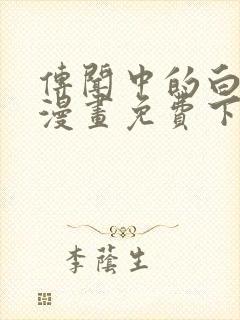 傳聞中的白
漫畫免費下
李蔭生